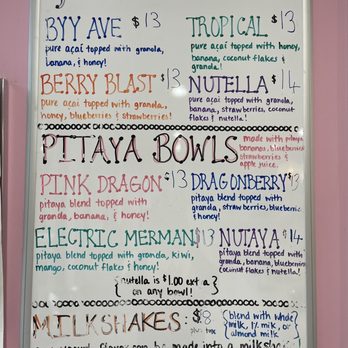 BYY AVE $13
pure açaí topped with granola,
banana, & honey!
TROPICAL $13
pure açaí topped with honey,
banana, coconut flakes &
granola!
BERRY BLAST $13
pure açaí topped with granola,
honey, blueberries & strawberries!
NUTELLA $14
pure açaí topped with granola,
banana, strawberries, coconut
flakes & nutella!
PITAYA BOWLS
made with pitaya
bananas, blueberries
strawberries &
apple juice.
PINK DRAGON $13
pitaya blend topped with
granola, banana, & honey!
DRAGONBERRY $13
pitaya blend topped with
granola, strawberries, blueberries
& honey!
ELECTRIC MERMAN $13
pitaya blend topped with granola, kiwi,
mango, coconut flakes & honey!
NUTAYA $14
pitaya blend topped with
granola, banana, blueberries
coconut flakes & nutella!
{nutella is $1.00 ext a
on any bowl!}
MILKSHAKES: $8
{blend with whole
milk, 1% milk, or
almond milk
can be made into a milkshake